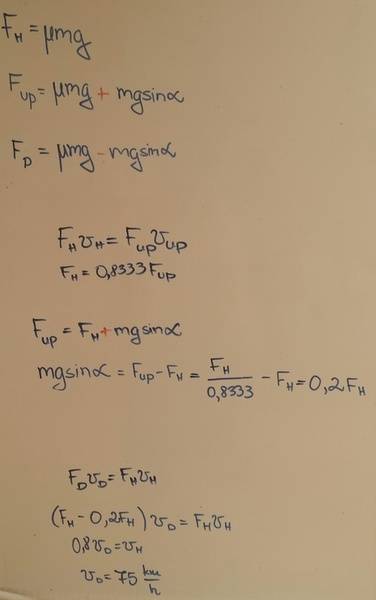 F_H = μmg
F_up = μmg + mgsinα
F_D = μmg - mgsinα
F_H v_H = F_up v_up
F_H = 0,8333 F_up
F_up = F_H + mgsinα
mgsinα = F_up - F_H = F_H / 0,8333 - F_H = 0,2 F_H
F_D v_D = F_H v_H
(F_H - 0,2F_H) v_D = F_H v_H
0,8 v_D = v_H
v_D = 75 km/h